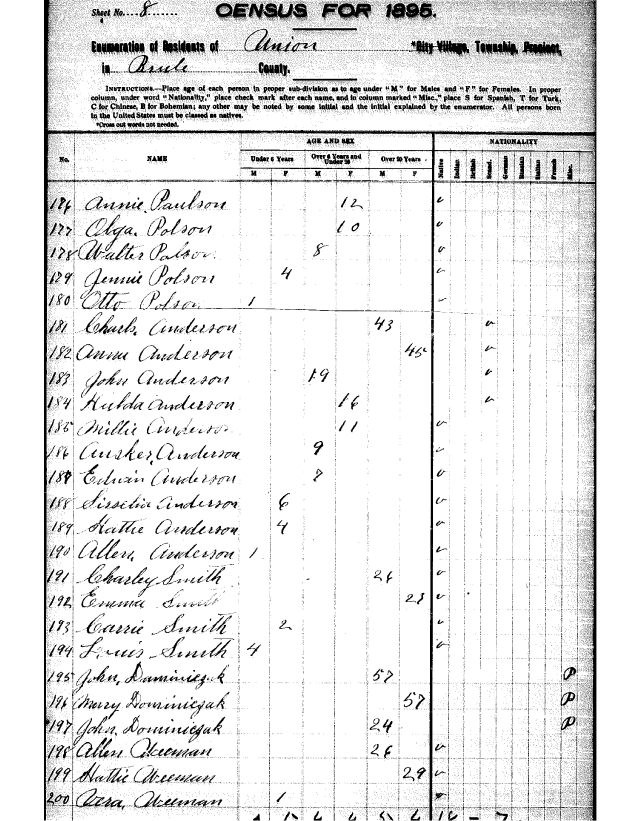 Sheet No. 8 CENSUS FOR 1895.
Enumeration of Residents of Union *City Village, Township, Precinct,
in Brule County.
INSTRUCTIONS.—Place age of each person in proper sub-division as to age under "M" for Males and "F" for Females. In proper
column, under word "Nationality," place check mark after each name, and in column marked "Misc," place S for Spanish, T for Turk,
C for Chinese, B for Bohemian; any other may be noted by some initial and the initial explained by the enumerator. All persons born
in the United States must be classed as natives.
*Cross out words not needed.
AGE AND SEX NATIONALITY
No. NAME Under 6 Years Over 6 Years and Under 20 Over 20 Years Native Scand. German Russian Italian French Misc.
M F M F M F
176 Annie Paulson 12 ✓
177 Olga Polson 10 ✓
178 Walter Polson 8 ✓
179 Jennie Polson 4 ✓
180 Otto Polson 1 ✓
181 Charls Anderson 43 ✓
182 Anna Anderson 45 ✓
183 John Anderson 19 ✓
184 Hulda Anderson 16 ✓
185 Millie Anderson 11 ✓
186 Ausker Anderson 9 ✓
187 Edwin Anderson 7 ✓
188 Anderson 6 ✓
189 Hattie Anderson 4 ✓
190 Allen Anderson 1 ✓
191 Charley Smith 26 ✓
192 Emma Smith 28 ✓
193 Carrie Smith 2 ✓
194 Louis Smith 4 ✓
195 John Dominiczak 57 P
196 Merry Dominiczak 57 P
197 John Dominiczak 24 P
198 Allen Weeman 26 ✓
199 Hattie Weeman 29 ✓
200 Vera Weeman 1 ✓